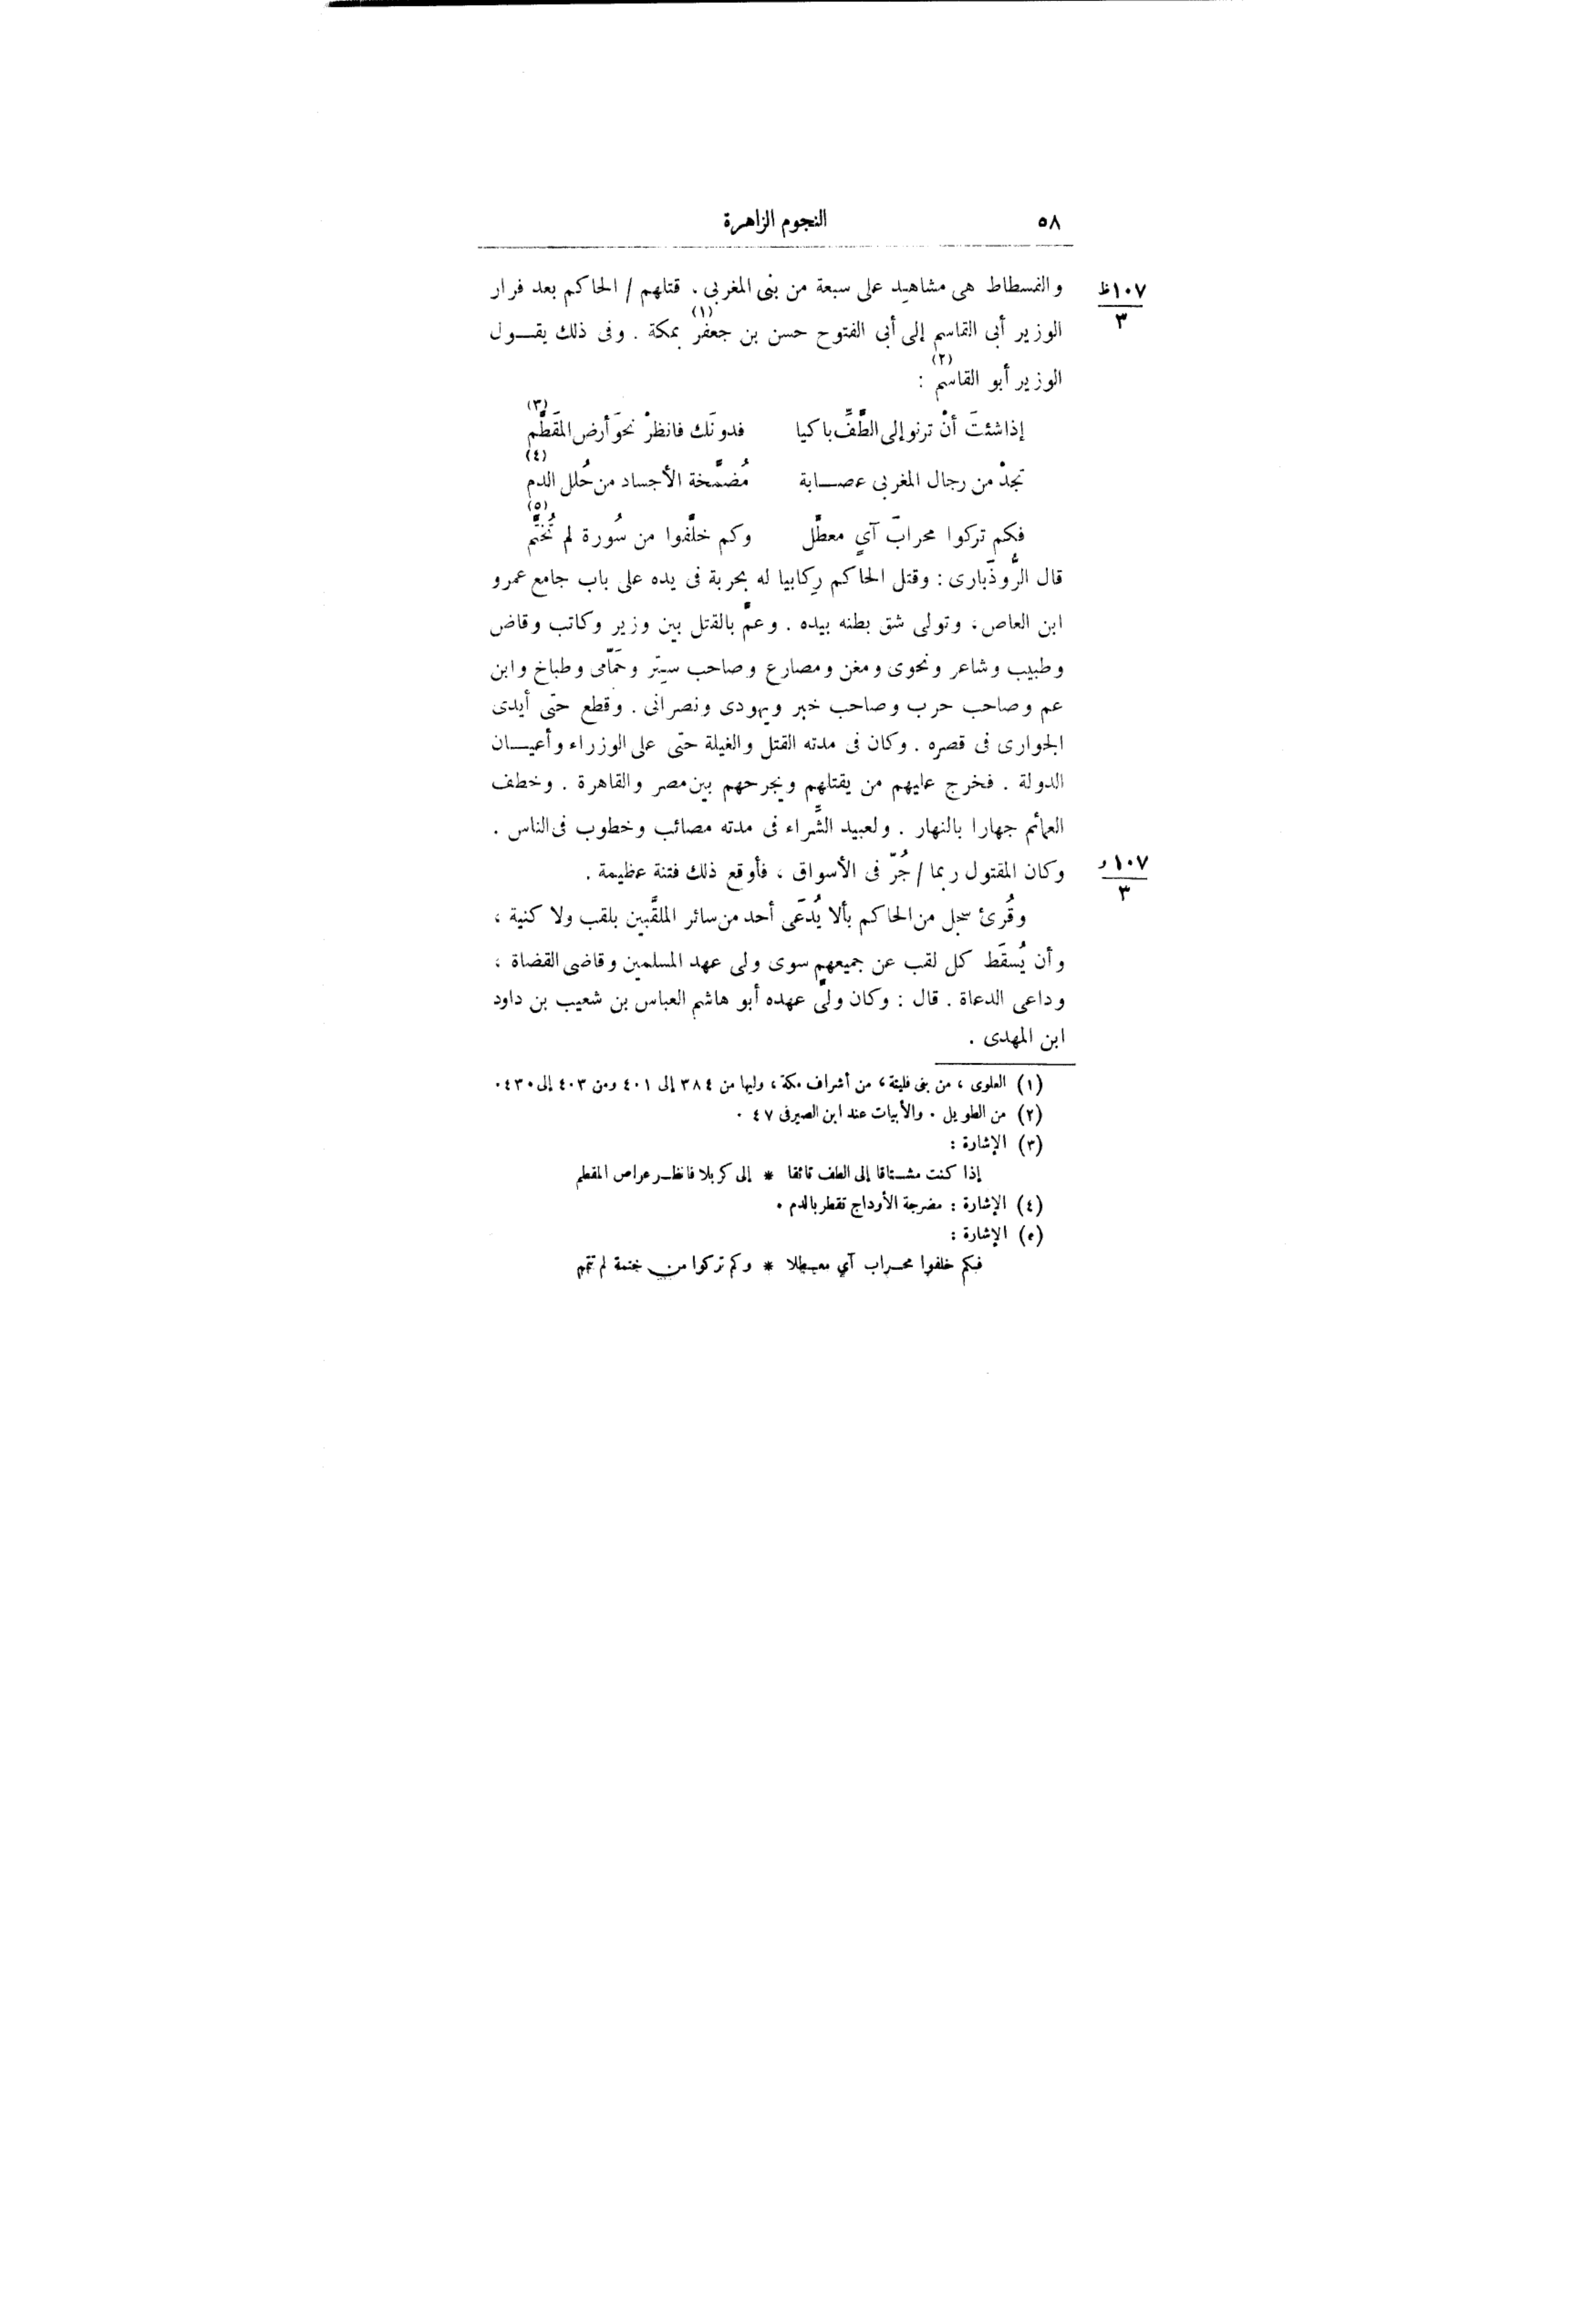 ٥٨ النجوم الزاهرة
والفسطاط هى مشاهيد على سبعة من بنى المغربى. قتلهم / الحاكم بعد فرار ١٠٧ظ/٣
الوزير أبى القاسم إلى أبى الفتوح حسن بن جعفر (١) بمكة . وفى ذلك يقــول
الوزير أبو القاسم (٢) :
إذا شئتَ أنْ ترنو إلى الطَّفِّ باكيا فدونَك فانظرْ نحوَ أرض المقَطَّم (٣)
تجدْ من رجال المغربى عصــابة مُضمَّخة الأجساد من حُلل الدم (٤)
فكم تركوا محرابَ آىٍ معطَّل وكم خلَّفوا من سُورة لم تُختَّم (٥)
قال الرُّوذَبارى : وقتل الحاكم رِكابيا له بحربة فى يده على باب جامع عمرو
ابن العاص، وتولى شق بطنه بيده . وعمَّ بالقتل بين وزير وكاتب وقاض
وطبيب وشاعر ونحوى ومغن ومصارع وصاحب سِتر وحَمّامى وطباخ وابن
عم وصاحب حرب وصاحب خبر ويهودى ونصرانى . وقطع حتى أيدى
الجوارى فى قصره . وكان فى مدته القتل والغيلة حتى على الوزراء وأعيــان
الدولة . فخرج عليهم من يقتلهم ويجرحهم بين مصر والقاهرة . وخطف
العمائم جهارا بالنهار . ولعبيد الشِّراء فى مدته مصائب وخطوب فى الناس .
وكان المقتول ربما / جُرّ فى الأسواق ، فأوقع ذلك فتنة عظيمة . ١٠٧و/٣
وقُرئ سجل من الحاكم بألا يُدعَى أحد من سائر الملقَّبين بلقب ولا كنية ،
وأن يُسقَط كل لقب عن جميعهم سوى ولى عهد المسلمين وقاضى القضاة ،
وداعى الدعاة . قال : وكان ولىّ عهده أبو هاشم العباس بن شعيب بن داود
ابن المهدى .
(١) العلوى ، من بنى فليتة ، من أشراف مكة ، وليها من ٣٨٤ إلى ٤٠١ ومن ٤٠٣ إلى ٤٣٠.
(٢) من الطويل . والأبيات عند ابن الصيرفى ٤٧ .
(٣) الإشارة :
إذا كنت مشــتاقا إلى الطف تائقا * إلى كربلا فانظــر عراص المقطم
(٤) الإشارة : مضرجة الأوداج تقطر بالدم .
(٥) الإشارة :
فكم خلفوا محــراب آي معــطلا * وكم تركوا من ختمة لم تتمم